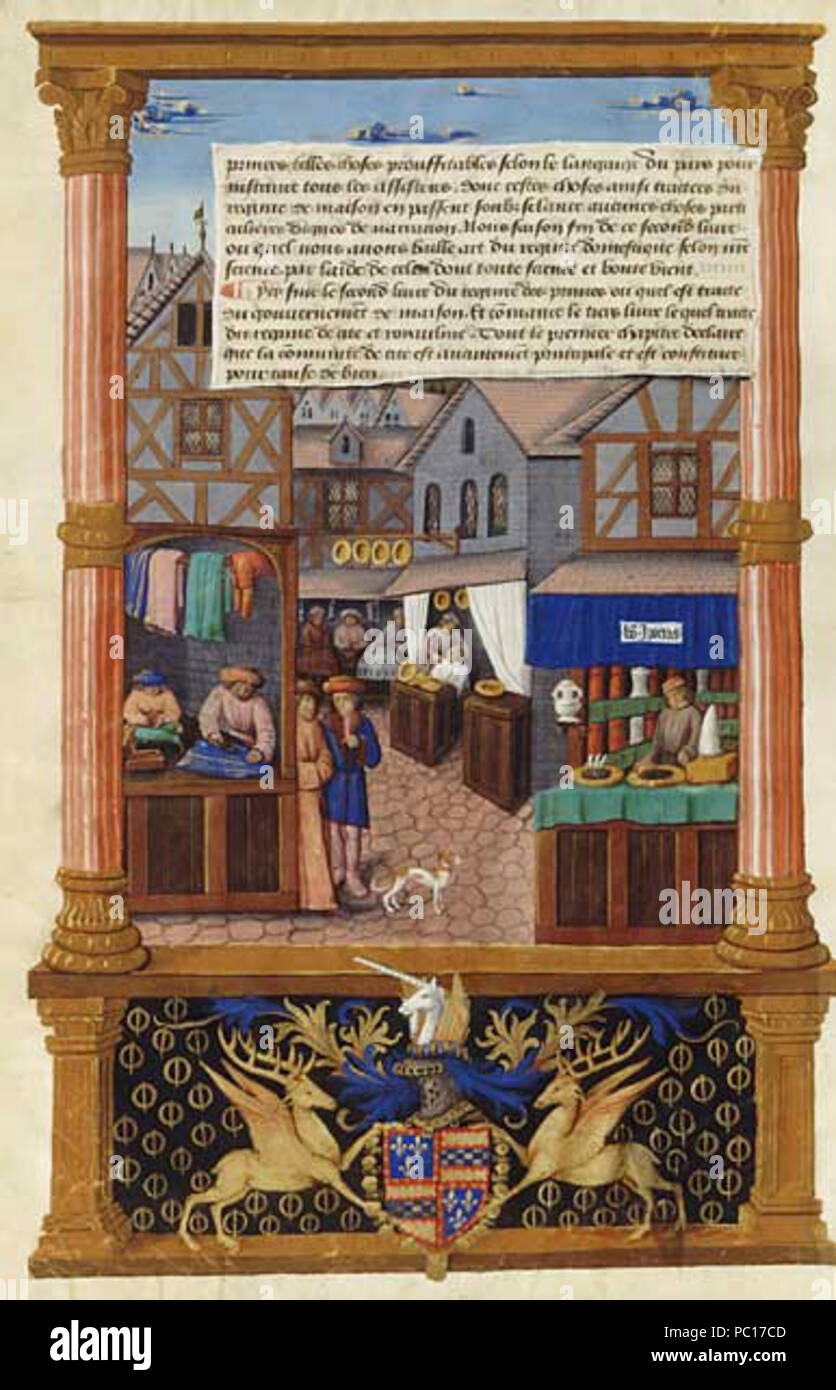 princes belles choses prouffitables selon le langaige du pays pour
instruire tous les assistens. Donc cestes choses ainsi traictees du
regime de maison en passent soubz silance aucunes choses parti
culieres dignes de narration. Nous faison fin de ce second livre
ou quel nous avons baille art du regime domestique selon nre
science par laide de celui dont toute science et bonte vient.
Cy fine le second livre du regime des princes ou quel est traicte
du gouvernement de maison. Et comance le tiers livre le quel traicte
du regime de cite et royaulme. Dont le premier chapitre declaire
que la communite de cite est aucunement principale et est constituee
pour cause de bien.
bō Ipocras
alamy
alamy
Image ID: PC17CD
www.alamy.com